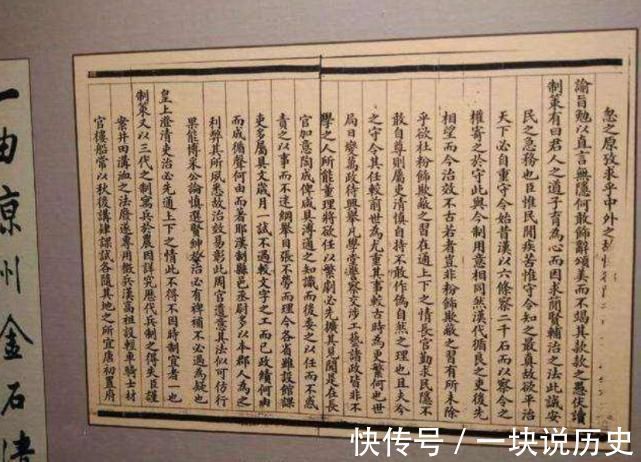 忽之原致求乎中外之
諭旨勉以直言無隱何敢飾辭頌美而不竭其款款之愚伏讀
制策有曰君人之道子育為心而因求簡賢輔治之法此誠安
民之急務也臣惟民間疾苦惟守令知之最真故欲平治
天下必自重守令始昔漢以六條察二千石而以察令之
權寄之於守此與今制用意相同然漢代循良之吏後先
相望而今治效不古若者豈非粉飾欺蔽之習有所未除
乎欲杜粉飾欺蔽之習在通上下之情長官勤求民隱不
敢自尊則屬吏清慎自持不敢作偽自然之理也且夫今
之守令其任較前世為尤重其事較古時為更繁何也世
局日變萬政待興舉凡學堂警察交涉工藝諸政皆非不
學之人所能董理將欲任以繁劇必先擴其見聞是在長
官加意陶成俾成具溥通之知識而後委之以任而不惑
責之以事而不迷綱舉目張不勞而理今各省雖設館課
吏多屬具文歲月一試不過較文字之工而已政績何由
而成循聲何由而著耶漢制縣邑丞尉多以本郡人為之
利弊其所夙悉故治效易彰此周官遺意其法似可仿行
果能博采公論慎選賢紳發治必有裨補不必過為疑也
皇上澄清吏治必先通上下之情此不得不因時制宜者一也
制策又以三代之制寓兵於農因詳究歷代兵制之得失臣謹
案井田溝洫之法廢遂專用徵兵漢高祖設輕車騎士材
官樓船常以秋後講肄課試各隨其地之所宜唐初置府
一由涼州金石
快传号/一块说历史